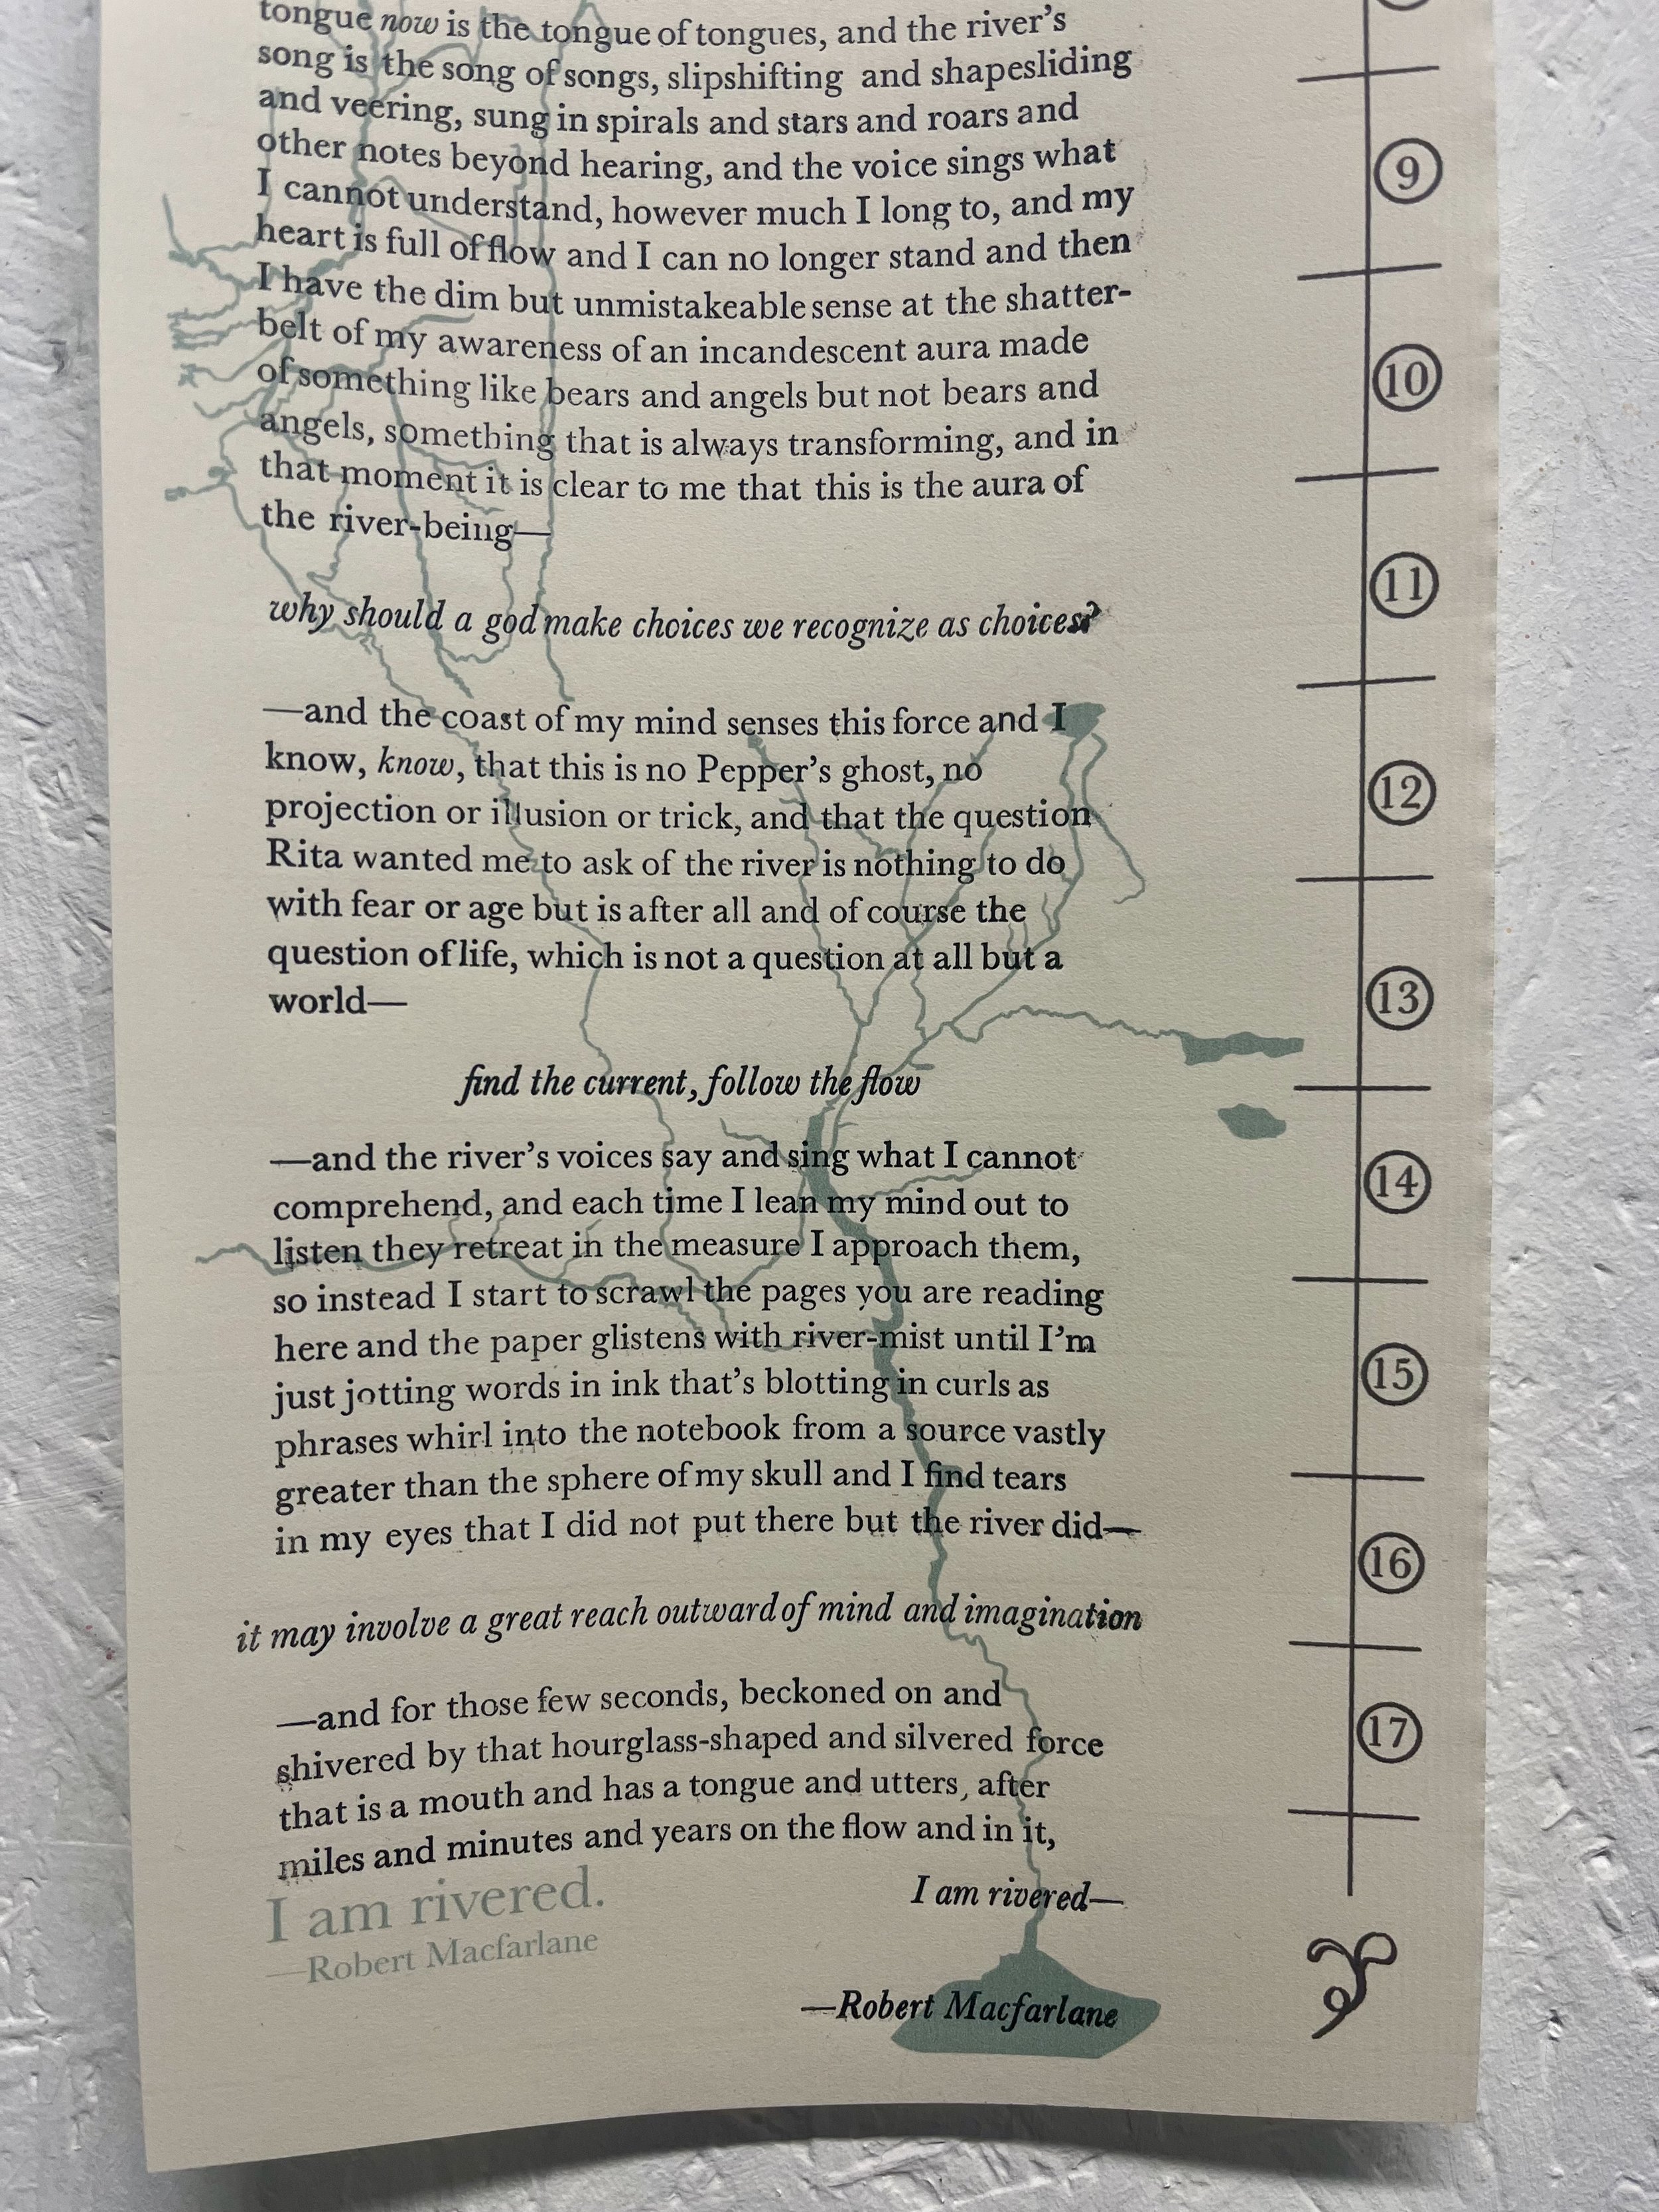 tongue now is the tongue of tongues, and the river's
song is the song of songs, slipshifting and shapesliding
and veering, sung in spirals and stars and roars and
other notes beyond hearing, and the voice sings what
I cannot understand, however much I long to, and my
heart is full of flow and I can no longer stand and then
I have the dim but unmistakeable sense at the shatter-
belt of my awareness of an incandescent aura made
of something like bears and angels but not bears and
angels, something that is always transforming, and in
that moment it is clear to me that this is the aura of
the river-being—
why should a god make choices we recognize as choices?
—and the coast of my mind senses this force and I
know, know, that this is no Pepper's ghost, no
projection or illusion or trick, and that the question
Rita wanted me to ask of the river is nothing to do
with fear or age but is after all and of course the
question of life, which is not a question at all but a
world—
find the current, follow the flow
—and the river's voices say and sing what I cannot
comprehend, and each time I lean my mind out to
listen they retreat in the measure I approach them,
so instead I start to scrawl the pages you are reading
here and the paper glistens with river-mist until I'm
just jotting words in ink that's blotting in curls as
phrases whirl into the notebook from a source vastly
greater than the sphere of my skull and I find tears
in my eyes that I did not put there but the river did—
it may involve a great reach outward of mind and imagination
—and for those few seconds, beckoned on and
shivered by that hourglass-shaped and silvered force
that is a mouth and has a tongue and utters, after
miles and minutes and years on the flow and in it,
I am rivered—
I am rivered.
—Robert Macfarlane
—Robert Macfarlane
9
10
11
12
13
14
15
16
17